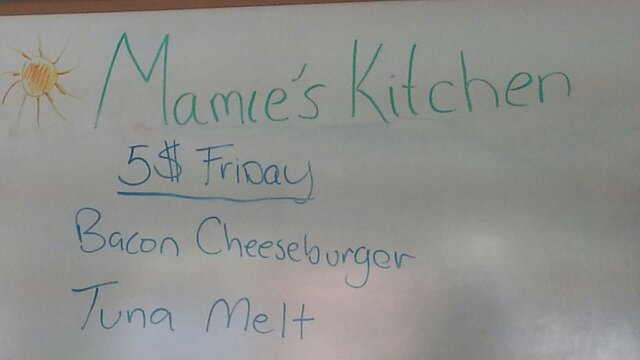 Mamie's Kitchen
5$ Friday
Bacon Cheeseburger
Tuna Melt